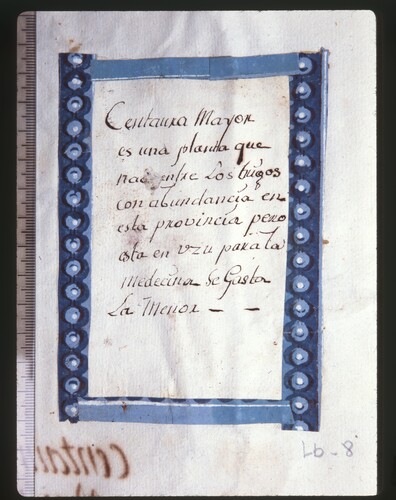 Centaura Mayor
es una planta que
nac entre Los trigos
con abundançia en
esta provincia pero
esta en vzu para la
medecina Se Gasta
La Menor - -
Lb-8